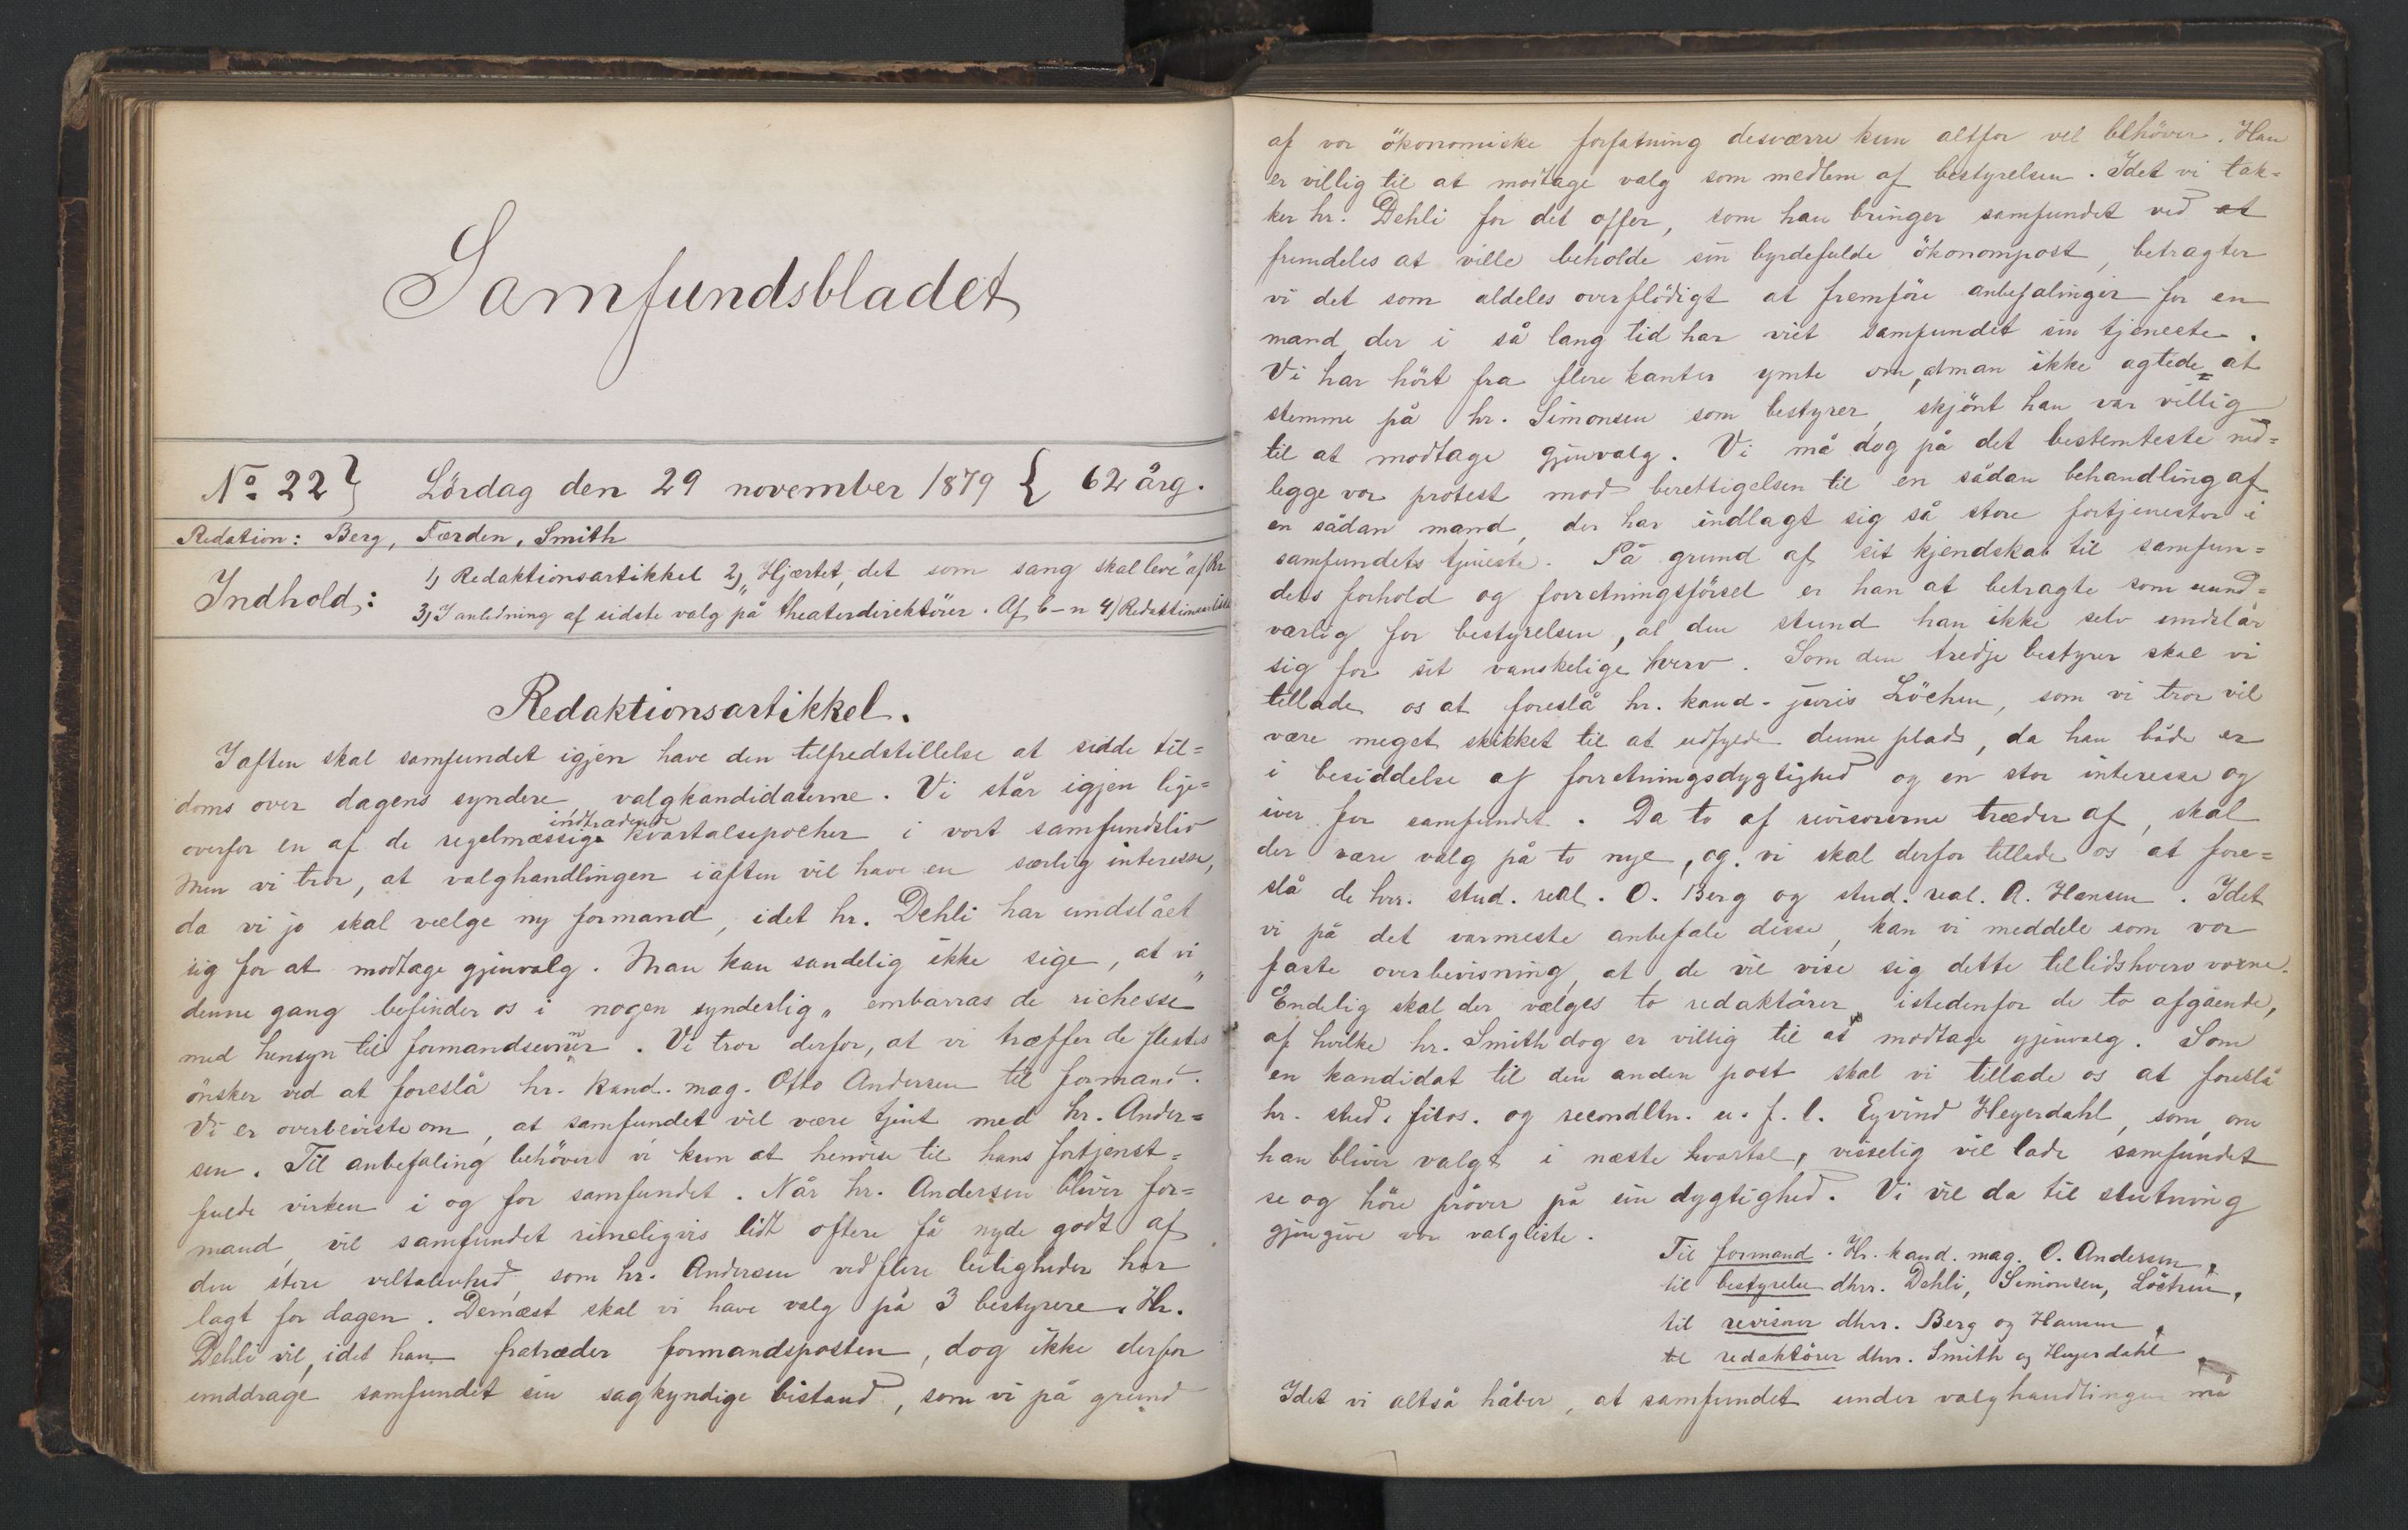 Samfundsbladet
No 22 } Lördag den 29 november 1879 { 62 årg.
Redation: Berg, Færden, Smith
Indhold: 1) Redaktionsartikkel 2) „Hjærtet, det som sang skal leve" af Kr
3) I anledning af sidste valg på theaterdirektörer. Af b–n 4) Redaktionsartikkel
Redaktionsartikkel.
Iaften skal samfundet igjen have den tilfredstillelse at sidde til=
doms over dagens syndere, valgkandidaterne. Vi står igjen lige=
overfor en af de regelmæssige indtrædende kvartalsepocher i vort samfundsliv
Men vi tror, at valghandlingen iaften vil have en særlig interesse,
da vi jo skal vælge ny formand, idet hr. Dehli har undslået
sig for at modtage gjenvalg. Man kan sandelig ikke sige, at vi
denne gang befinder os i nogen synderlig „embarras de richesse"
med hensyn til formandsemner. Vi tror derfor, at vi træffer de flestes
önsker ved at foreslå hr. kand. mag. Otto Andersen til formand.
Vi er overbeviste om, at samfundet vil være tjent med hr. Ander=
sen. Til anbefaling behöver vi kun at henvise til hans fortjenst=
fulde virken i og for samfundet. Når hr. Andersen bliver for=
mand, vil samfundet rimeligvis lidt oftere få nyde godt af
den store veltalenhed, som hr. Andersen ved flere leiligheder har
lagt for dagen. Dernæst skal vi have valg på 3 bestyrere. Hr.
Dehli vil, idet han fratræder formandsposten, dog ikke derfor
unddrage samfundet sin sagkyndige bistand, som vi på grund
af vor ökonomiske forfatning desværre kun altfor vel behöver. Han
er villig til at modtage valg som medlem af bestyrelsen. Idet vi tak=
ker hr. Dehli for det offer, som han bringer samfundet ved at
fremdeles at ville beholde sin byrdefulde ökonompost, betragter
vi det som aldeles overflödigt at fremföre anbefalinger for en
mand, der i så lang tid har viet samfundet sin tjeneste.
Vi har hört fra flere kanter ymte om, at man ikke agtede at
stemme på hr. Simonsen som bestyrer, skjönt han var villig
til at modtage gjenvalg. Vi må dog på det bestemteste ned=
legge vor protest mod berettigelsen til en sådan behandling af
en sådan mand, der har indlagt sig så store fortjenester i
samfundets tjeneste. På grund af sit kjendskab til samfun=
dets forhold og forretningsförsel er han at betragte som uund=
værlig for bestyrelsen, al den stund han ikke selv undslår
sig for sit vanskelige hverv. Som den tredje bestyrer skal vi
tillade os at foreslå hr. kand. juris Löchen, som vi tror vil
være meget skikket til at udfylde denne plads, da han både er
i besiddelse af forretningsdygtighed og en stor interesse og
iver for samfundet. Da to af revisorerne træder af, skal
der være valg på to nye, og vi skal derfor tillade os at fore=
slå de hrr. stud. real. O. Berg og stud. real. A. Hansen. Idet
vi på det varmeste anbefale disse, kan vi meddele som vor
faste overbevisning, at de vil vise sig dette tillidshverv voxne.
Endelig skal der vælges to redaktörer istedenfor de to afgående,
af hvilke hr. Smith dog er villig til at modtage gjenvalg. Som
en kandidat til den anden post skal vi tillade os at foreslå
hr. stud. filos. og secondltn. u. f. l. Eyvind Heyerdahl, som, om
han bliver valgt i næste kvartal, visselig vil lade samfundet
se og höre pröver på sin dygtighed. Vi vil da til slutning
gjengive vor valgliste.
Til formand. Hr. kand. mag. O. Andersen,
til bestyrelse dhrr. Dehli, Simonsen, Löchen,
til revisorer dhrr. Berg og Hansen,
til redaktörer dhrr. Smith og Heyerdahl.
Idet vi altså håber, at samfundet under valghandlingen må